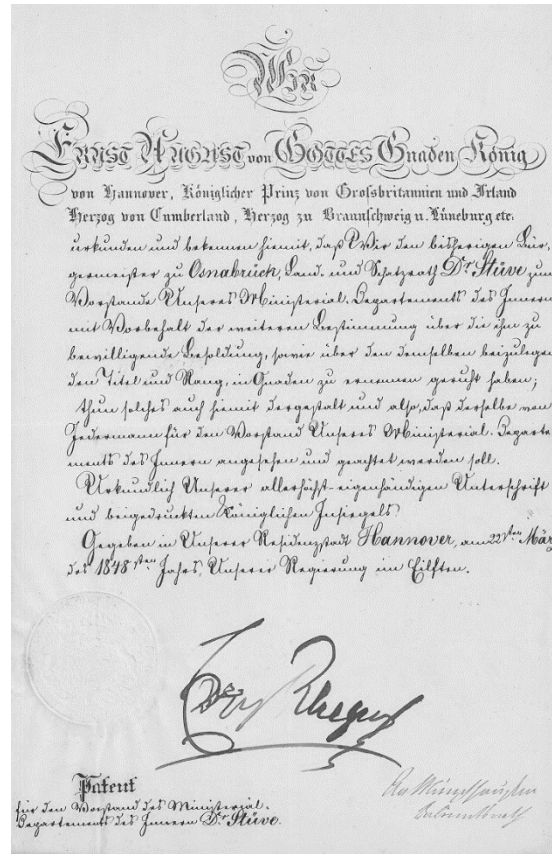 Wir
Ernst August von Gottes Gnaden König
von Hannover, Königlicher Prinz von Grossbritannien und Irland
Herzog von Cumberland, Herzog zu Braunschweig u. Lüneburg etc.
urkunden und bekennen hiemit, daß Wir den bisherigen Bür-
germeister zu Osnabrück, Land- und Schatzrath Dr. Stüve zum
Vorstande Unseres Ministerial-Departements des Innern
mit Vorbehalt der weiteren Bestimmung über die ihm zu
bewilligende Besoldung, sowie über den demselben beizulegen
den Titel und Rang, in Gnaden zu ernennen geruht haben;
thun solches auch hiemit dergestalt und also, daß derselbe von
Jedermann für den Vorstand Unseres Ministerial-Departe
ments des Innern angesehen und geachtet werden soll.
Urkundlich Unserer allerhöchst-eigenhändigen Unterschrift
und beigedruckten Königlichen Insiegels.
Gegeben in Unserer Residenzstadt Hannover, am 22sten März
des 1848sten Jahrs, Unserer Regierung im Eilften.
Ernst August
Patent
für den Vorstand des Ministerial-
Departements des Innern Dr. Stüve.